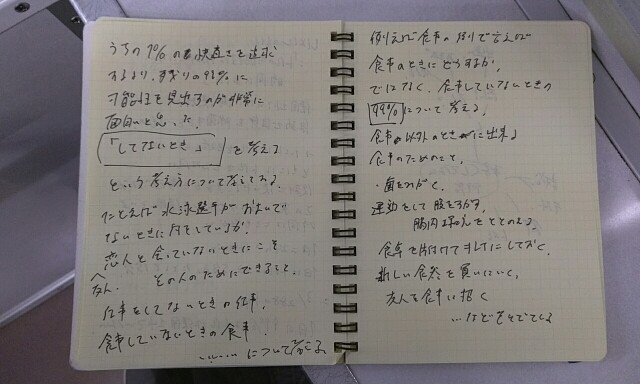 うちの1%の最快適さを追求
するより、残りの99%に
可能性を見出すのが非常に
面白いと思った。
「してないとき」を考える
という考え方について考えてみる
たとえば水泳選手がおよいで
ないときに何をしているか。
恋人と会っていないときにこそ
友人、その人のためにできること。
仕事をしてないときの仕事、
食事していないときの食事
……について考える。
例えば食事の例で言えば
食事のときにどうするか、
ではなく、食事していないときの
99%について考える。
食事以外のときに出来る
食事のためのこと、
・歯をみがく。
運動をして腹をすかす。
腸内環境をととのえる
食卓を片付けてキレイにしておく。
新しい食器を買いにいく。
友人を食事に招く
…など